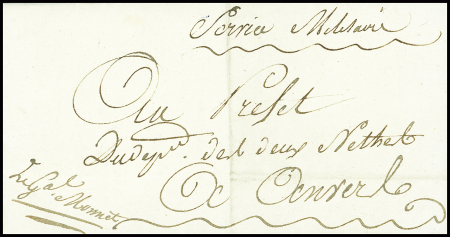 Service Militaire
Au Préfet
Du dep.nt des deux Nethes
A Anvers
Le Gal. Monnet